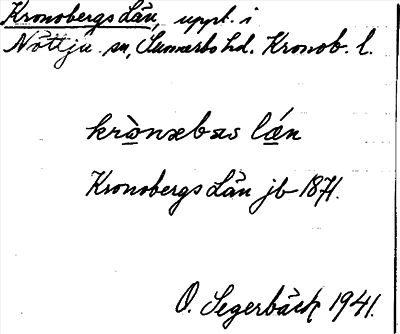 Kronobergs Län, uppt. i
Nöttja sn, Sunnerbo hd. Kronob. l.
krònxbxs lǽn
Kronobergs Län jb 1871.
O. Segerbäck 1941.